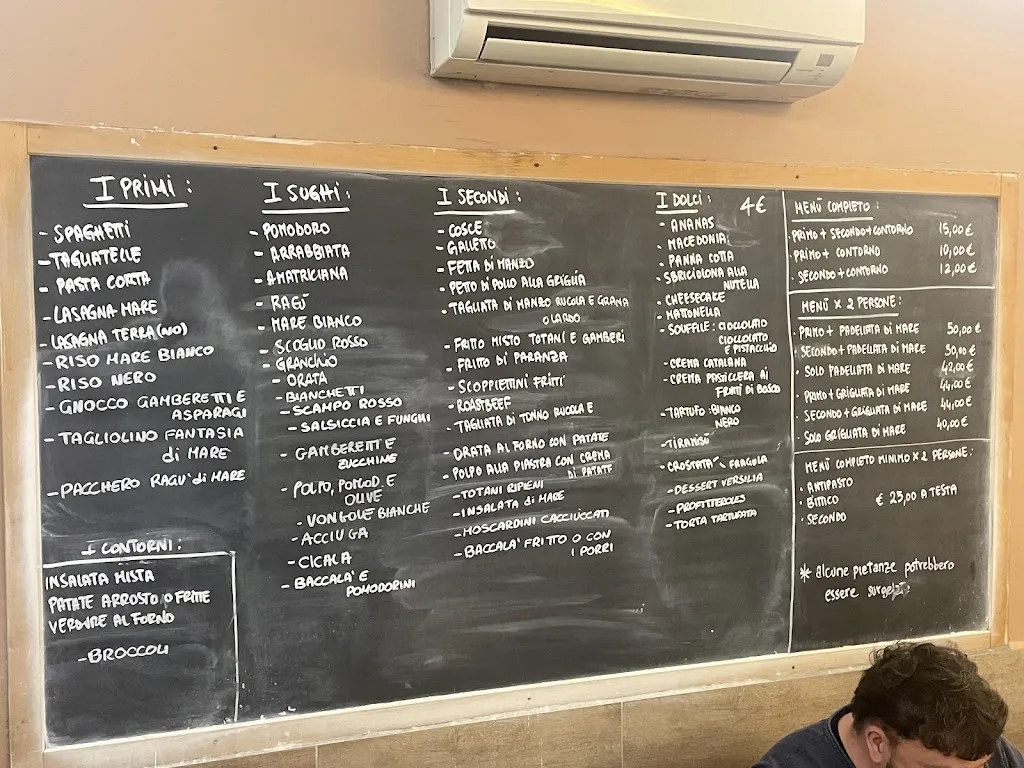 I PRIMI :
- SPAGHETTI
- TAGLIATELLE
- PASTA CORTA
- LASAGNA MARE
- LASAGNA TERRA (NO)
- RISO MARE BIANCO
- RISO NERO
- GNOCCO GAMBERETTI E
ASPARAGI
- TAGLIOLINO FANTASIA
di MARE
- PACCHERO RAGU' di MARE
I CONTORNI :
INSALATA MISTA
PATATE ARROSTO O FRITTE
VERDURE AL FORNO
- BROCCOLI
I SUGHI :
- POMODORO
- ARRABBIATA
- AMATRICIANA
- RAGÙ
- MARE BIANCO
- SCOGLIO ROSSO
- GRANCHIO
- ORATA
- BIANCHETTI
- SCAMPO ROSSO
- SALSICCIA E FUNGHI
- GAMBERETTI E
ZUCCHINE
- POLPO, POMOD. E
OLIVE
- VONGOLE BIANCHE
- ACCIUGA
- CICALA
- BACCALA' E
POMODORINI
I SECONDI :
- COSCE
- GALLETO
- FETTA DI MANZO
- PETTO DI POLLO ALLA GRIGLIA
- TAGLIATA DI MANZO RUCOLA E GRANA
O LARDO
- FRITTO MISTO TOTANI E GAMBERI
- FRITTO DI PARANZA
- SCOPPIETTINI FRITTI
- ROASTBEEF
- TAGLIATA DI TONNO RUCOLA E
- ORATA AL FORNO CON PATATE
- POLPO ALLA PIASTRA CON CREMA
DI PATATE
- TOTANI RIPIENI
- INSALATA di MARE
- MOSCARDINI CACCIUCCATI
- BACCALA' FRITTO O CON
I PORRI
I DOLCI : 4€
- ANANAS
- MACEDONIA
- PANNA COTTA
- SBRICIOLONA ALLA
NUTELLA
- CHEESECAKE
- MATTONELLA
- SOUFFLE : CIOCCOLATO
CIOCCOLATO
E PISTACCHIO
- CREMA CATALANA
- CREMA PASTICCERA AI
FRUTTI DI BOSCO
- TARTUFO : BIANCO
NERO
- TIRAMISÙ
- CROSTATA FRAGOLA
- DESSERT VERSILIA
- PROFITTEROLES
- TORTA TARTUFATA
MENÙ COMPLETO :
PRIMO + SECONDO + CONTORNO 15,00 €
- PRIMO + CONTORNO 10,00 €
- SECONDO + CONTORNO 12,00 €
MENÙ X 2 PERSONE :
- PRIMO + PADELLATA DI MARE 50,00 €
- SECONDO + PADELLATA DI MARE 50,00 €
- SOLO PADELLATA DI MARE 42,00 €
- PRIMO + GRIGLIATA DI MARE 44,00 €
- SECONDO + GRIGLIATA DI MARE 44,00 €
- SOLO GRIGLIATA DI MARE 40,00 €
MENÙ COMPLETO MINIMO X 2 PERSONE :
- ANTIPASTO
- BITTICO € 25,00 A TESTA
- SECONDO
* alcune pietanze potrebbero
essere surgelate